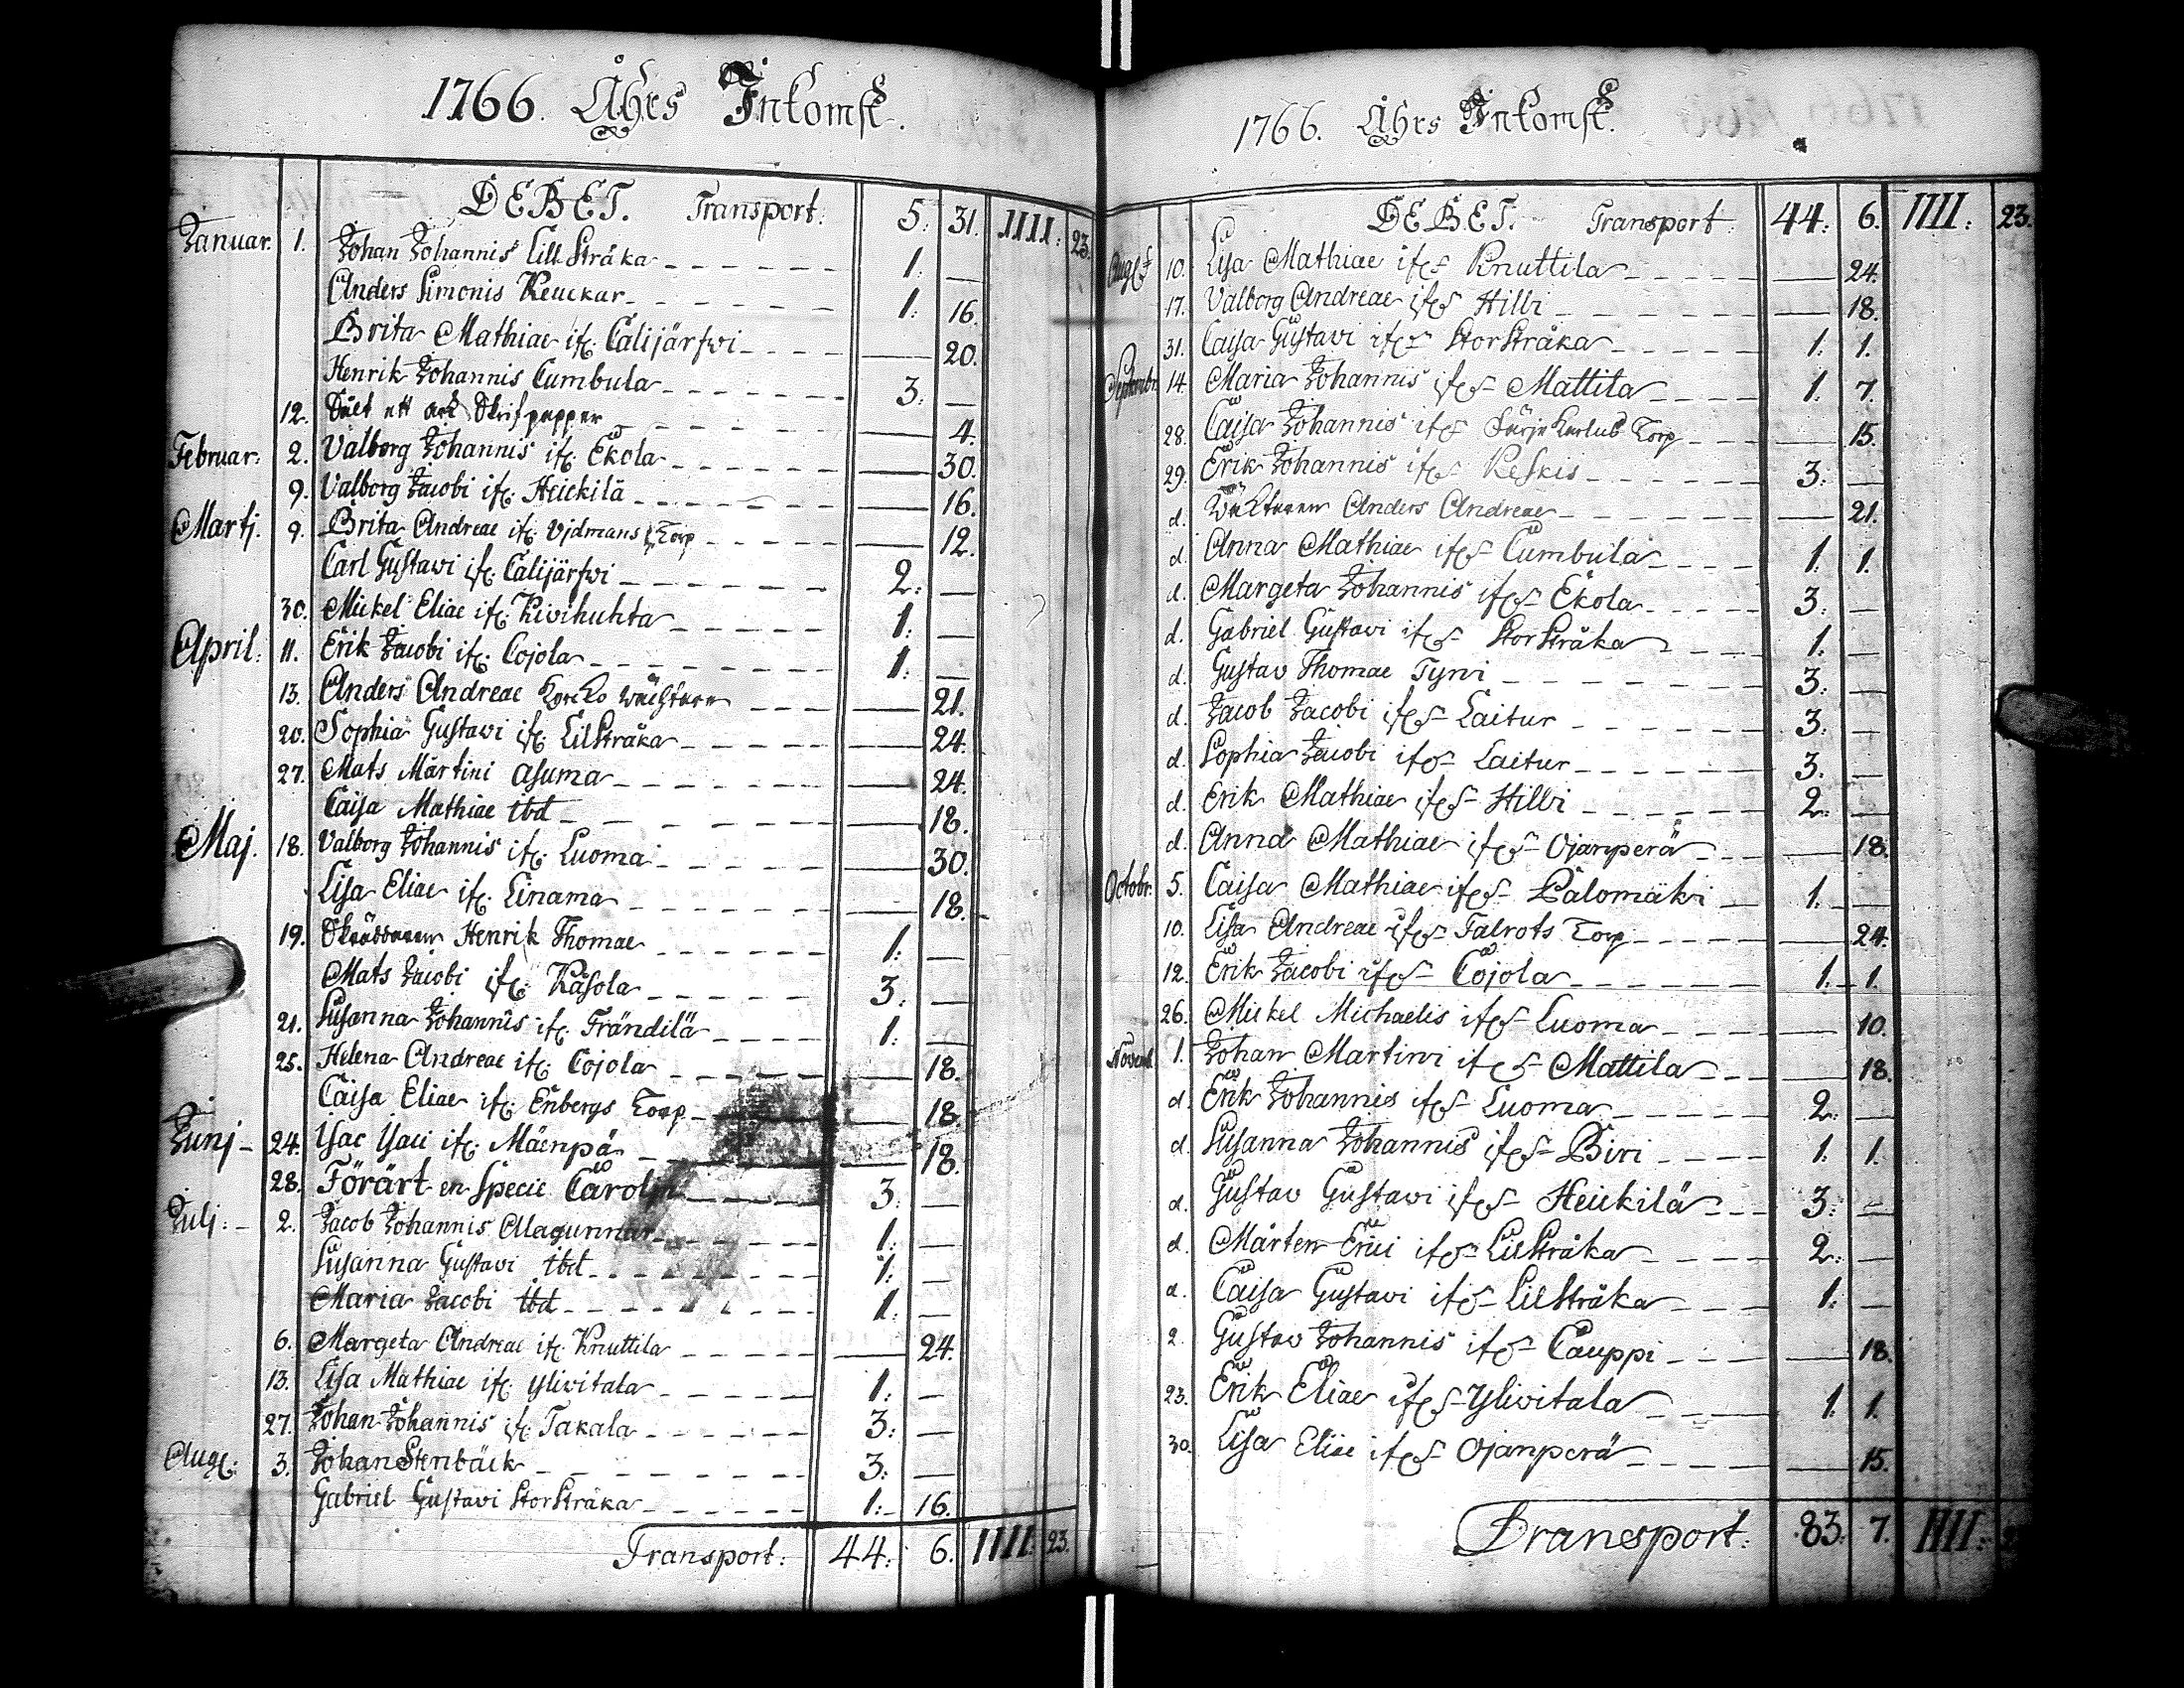 1766. Åhrs Inkomst.
DEBET. Transport. 5: 31. IIII: 23.
Januar. 1. Johan Johannis Lill Stråka 1: —
Anders Simonis Keuckar 1: 16.
Brita Mathiae ifr. Calijärfwi — 20.
Henrik Johannis Cumbula 3: —
12. Sålt ett ark Skrifpapper — 4.
Februar: 2. Valborg Johannis ifr. Ekola — 30.
9. Valborg Jacobi ifr. Heickilä — 16.
Martj. 9. Brita Andreae ifr. Vidmans Torp — 12.
Carl Gustavi ifr. Calijärfwi 2: —
30. Mickel Eliae ifr. Kivihuhta 1: —
April: 11. Erik Jacobi ifr. Cojola 1: —
13. Anders Andreae Kyrko wächtare — 21.
20. Sophia Gustavi ifr. Lilstråka — 24.
27. Mats Mårtini Asuma — 24.
Caisa Mathiae ibd — 18.
Maj. 18. Valborg Johannis ifr. Luoma — 30.
Lisa Eliae ifr. Linama — 18.
19. Skräddaren Henrik Thomae 1: —
Mats Jacobi ifr. Kåsola 3: —
21. Susanna Johannis ifr. Frändilä 1: —
25. Helena Andreae ifr. Cojola — 18.
Caisa Eliae ifr. Enbergs Torp — 18.
Junj — 24. Isac Isaci ifr. Mäenpä — 18.
28. Förärt en Specie Carolin 3: —
Julj: — 2. Jacob Johannis Alagunnar 1: —
Susanna Gustavi ibd 1: —
Maria Jacobi ibd 1: —
6. Margeta Andreae ifr. Knuttila — 24.
13. Lisa Mathiae ifr. Ylivitala 1: —
27. Johan Johannis ifr. Takala 3: —
Aug: 3. Johan Stenbäck 3: —
Gabriel Gustavi Storstråka 1: 16.
Transport: 44: 6. IIII: 23.
1766. Åhrs Inkomst.
DEBET: Transport: 44: 6. IIII: 23.
Augst 10. Lisa Mathiae ifrån Knuttila — 24.
17. Valborg Andreae ifrån Hilbi — 18.
31. Caisa Gustavi ifrån Storstråka 1: 1.
Septembr. 14. Maria Johannis ifrån Mattila 1: 7.
28. Caisa Johannis ifrån Torp — 15.
29. Erik Johannis ifrån Keskis 3: —
d. Wächtaren Anders Andreae — 21.
d. Anna Mathiae ifrån Cumbula 1: 1.
d. Margeta Johannis ifrån Ekola 3: —
d. Gabriel Gustavi ifrån Storstråka 1: —
d. Gustav Thomae Tyni 3: —
d. Jacob Jacobi ifrån Laitur 3: —
d. Sophia Jacobi ifrån Laitur 3. —
d. Erik Mathiae ifrån Hilbi 2: —
d. Anna Mathiae ifrån Ojanperä — 18.
Octobr: 5. Caisa Mathiae ifrån Palomäki 1. —
10. Lisa Andreae ifrån Falrots Torp — 24.
12. Erik Jacobi ifrån Cojola 1. 1.
26. Mickel Michaelis ifrån Luoma — 10.
Novemb. 1. Johan Martini ifrån Mattila — 18.
d. Erik Johannis ifrån Luoma 2: —
d. Susanna Johannis ifrån Biri 1: 1.
d. Gustav Gustavi ifrån Heickilä 3: —
d. Mårten Erici ifrån Lilstråka 2: —
d. Caisa Gustavi ifrån Lilstråka 1: —
2. Gustav Johannis ifrån Cauppi — 18.
23. Erik Eliae ifrån Ylivitala 1: 1.
30. Lisa Eliae ifrån Ojanperä — 15.
Transport: 83: 7. IIII: